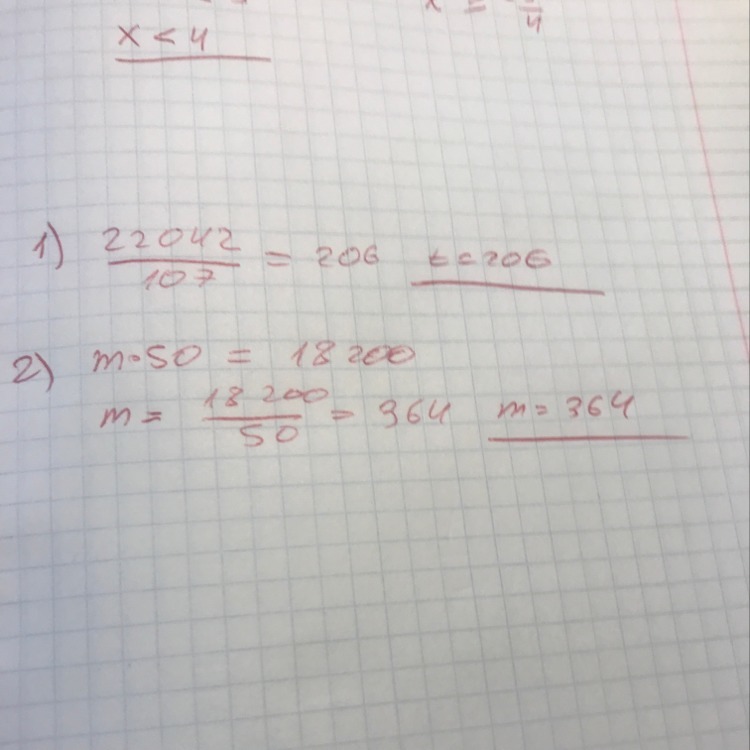 x < 4
1) 22042/107 = 206
2) m·50 = 18 200
m = 18 200/50 = 364 m = 364